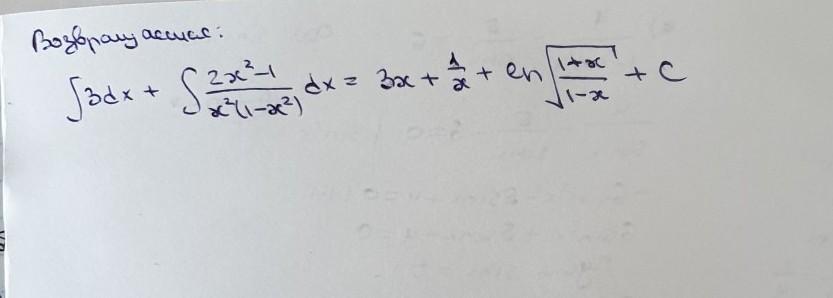 Возвращаемся:
∫3dx + ∫ (2x²-1)/(x²(1-x²)) dx = 3x + 1/x + ln√((1+x)/(1-x)) + C